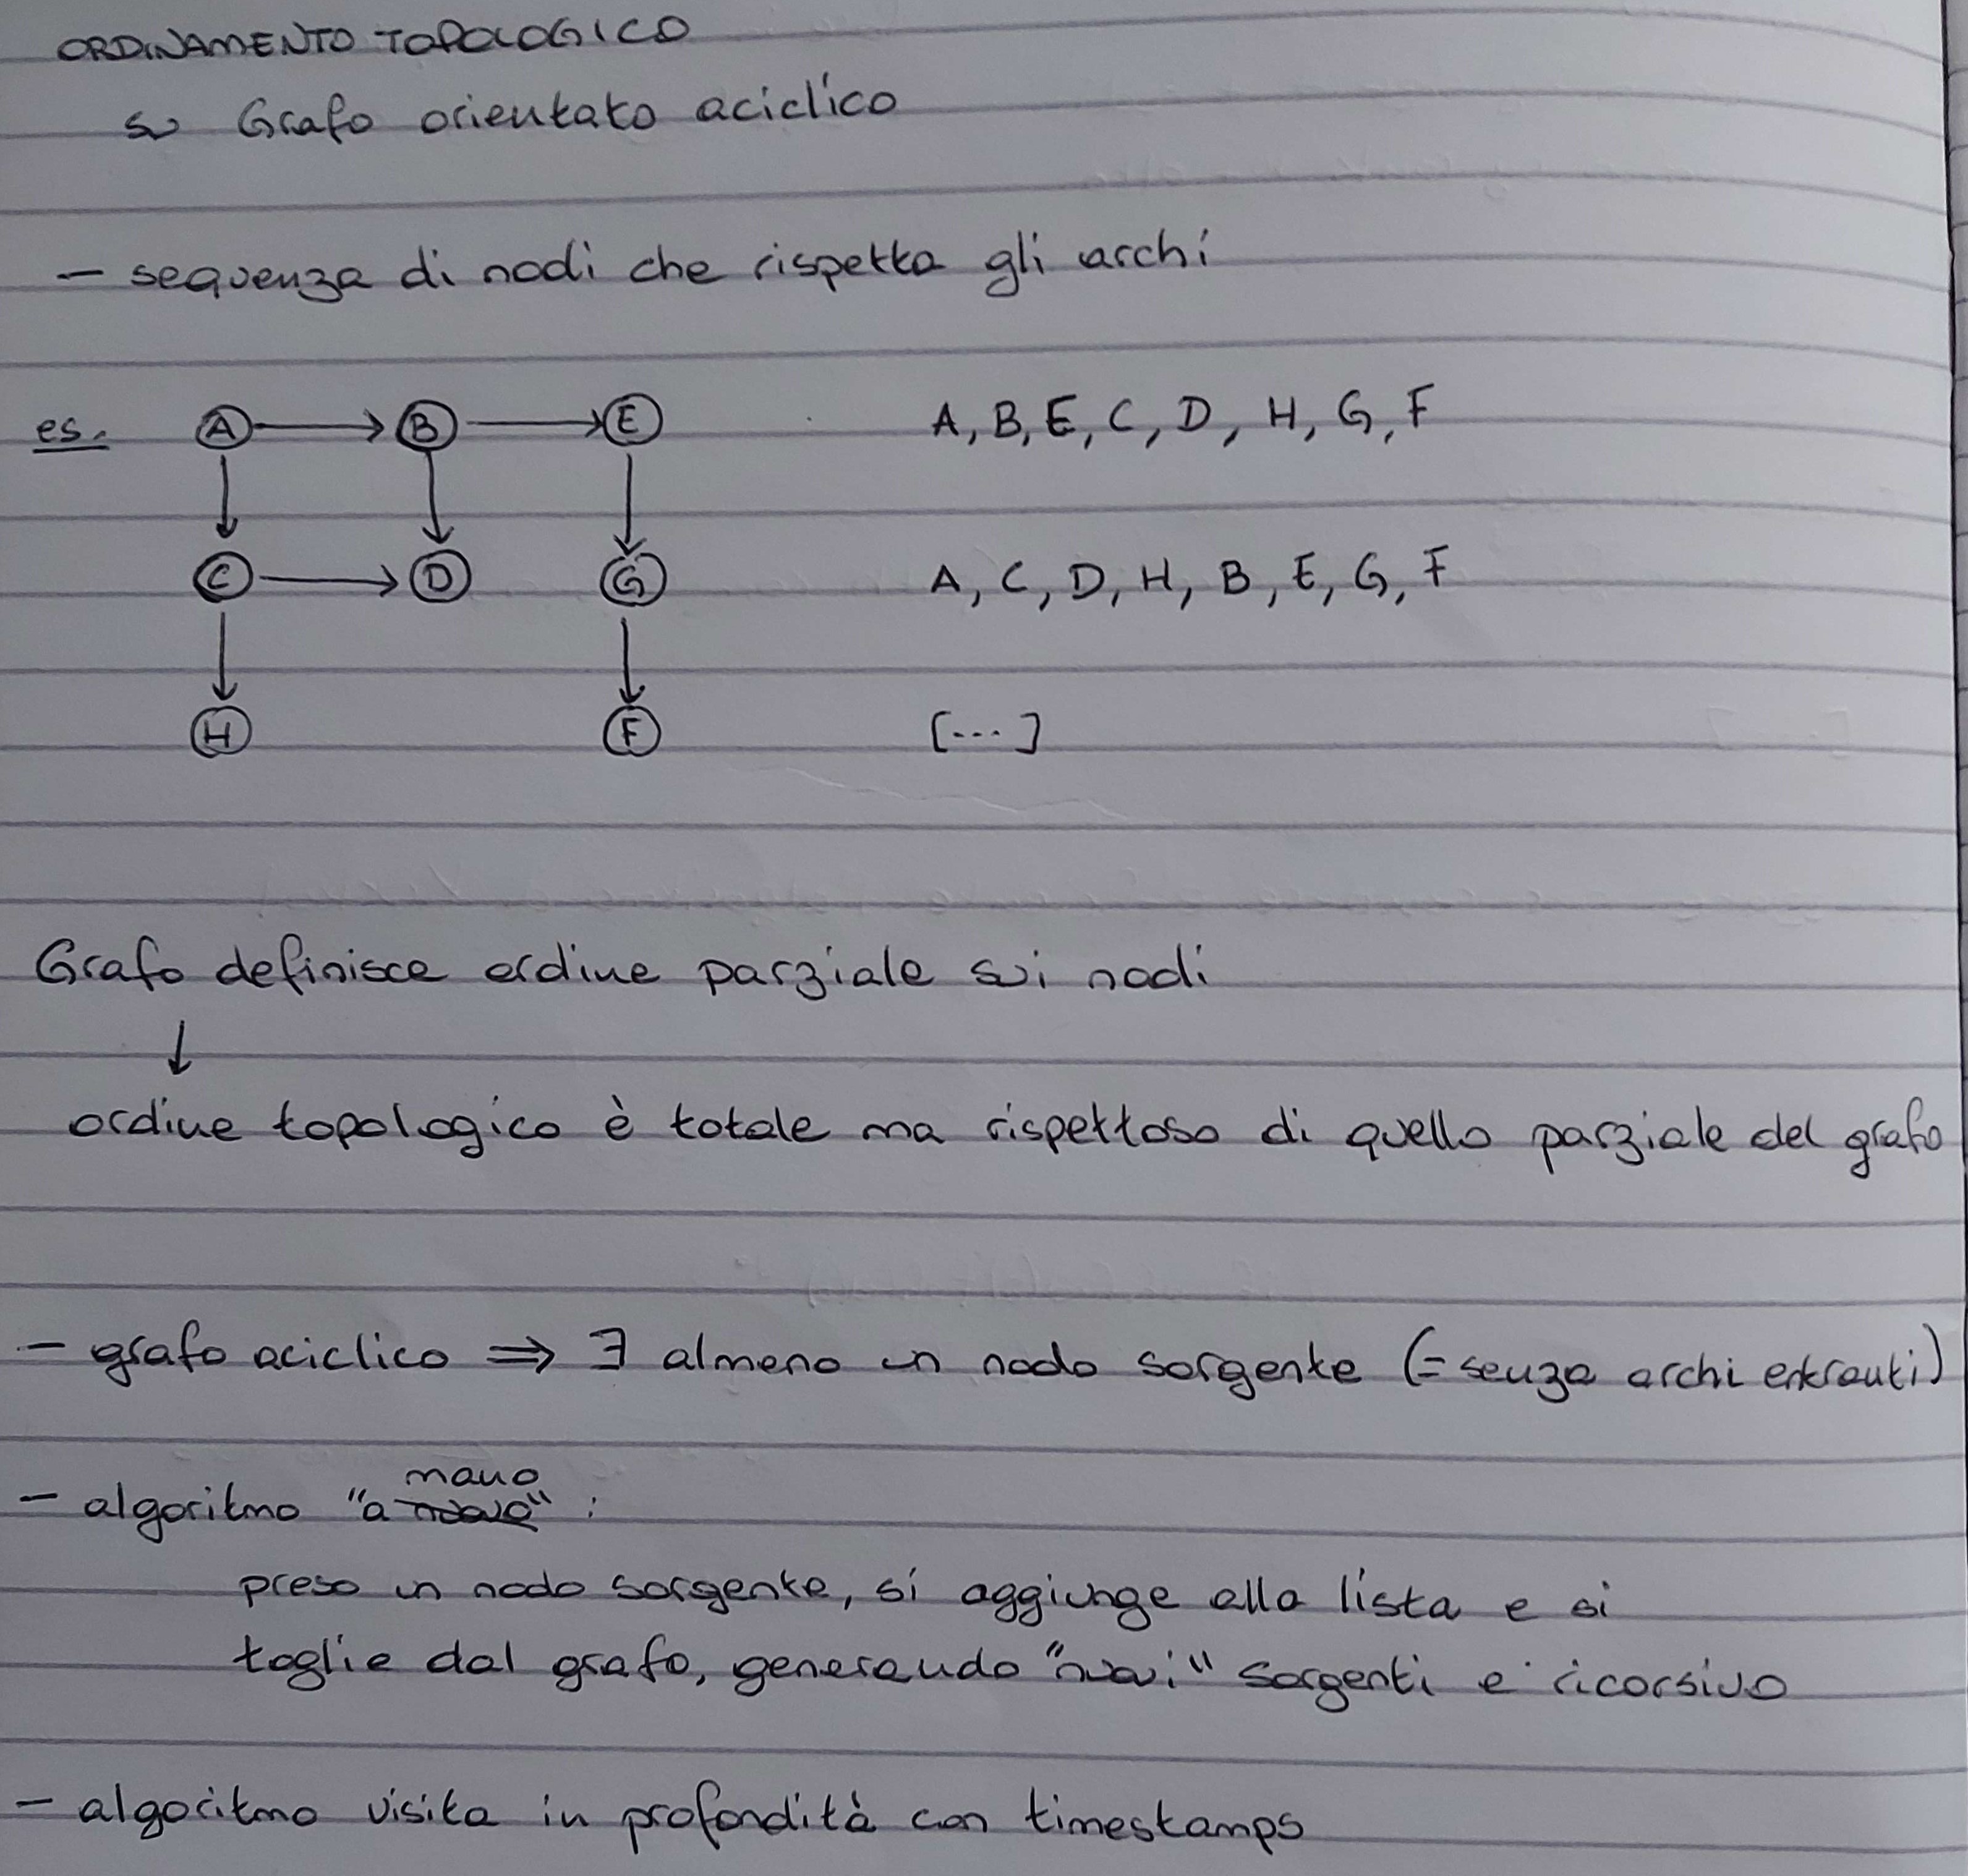 ORDINAMENTO TOPOLOGICO
su Grafo orientato aciclico
- sequenza di nodi che rispetta gli archi
es. A B E A, B, E, C, D, H, G, F
C D G A, C, D, H, B, E, G, F
H F [...]
Grafo definisce ordine parziale sui nodi
↓
ordine topologico è totale ma rispettoso di quello parziale del grafo
- grafo aciclico ⇒ ∃ almeno un nodo sorgente (= senza archi entranti)
mano
- algoritmo "a " :
preso un nodo sorgente, si aggiunge alla lista e si
toglie dal grafo, generando "nuovi" sorgenti e ricorsivo
- algoritmo visita in profondità con timestamps